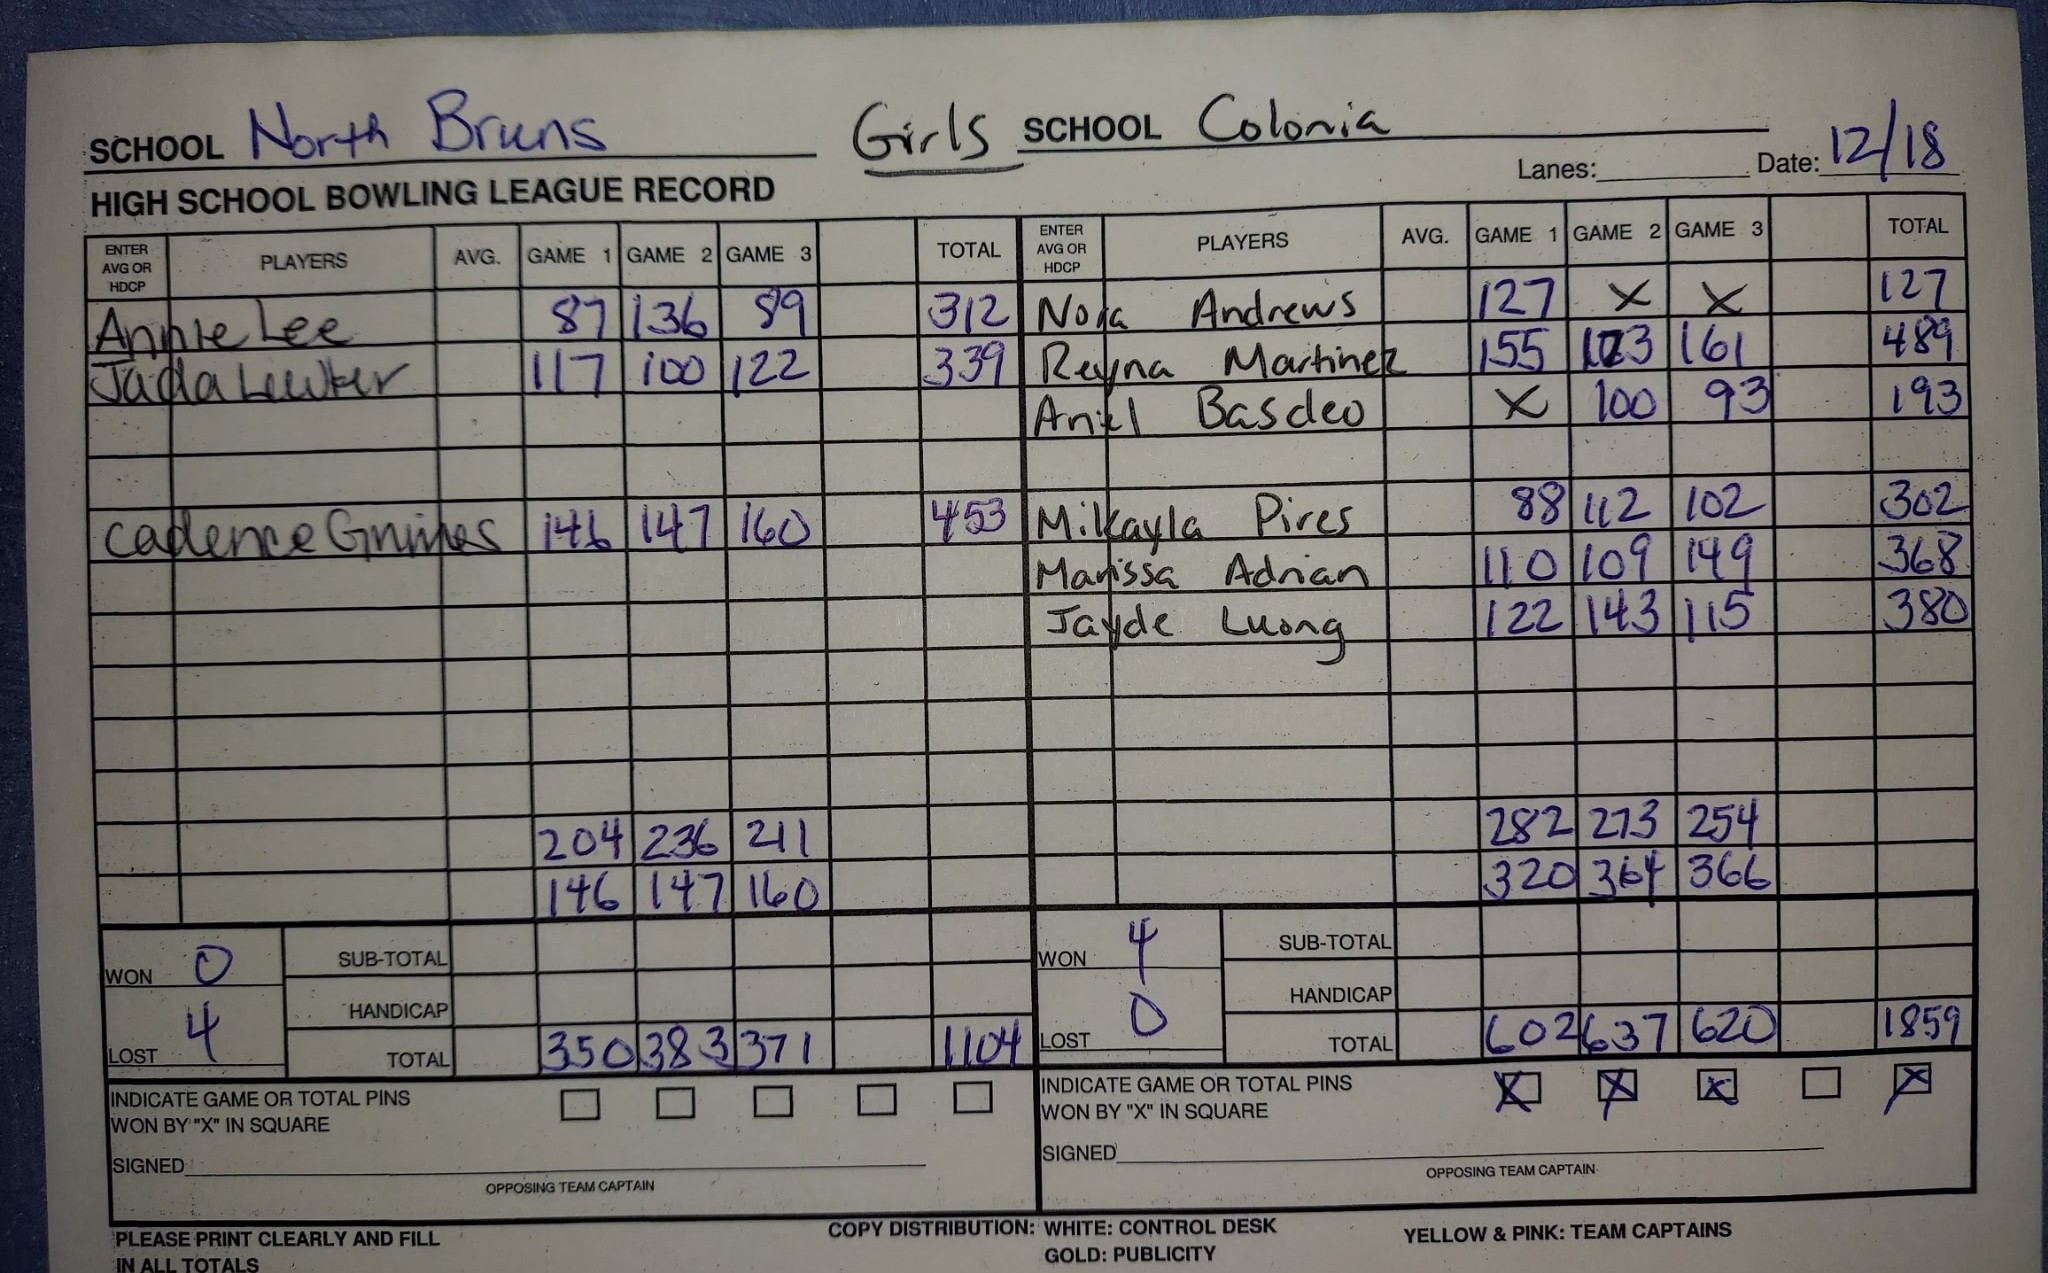 SCHOOL North Bruns Girls SCHOOL Colonia
Lanes: Date: 12/18
HIGH SCHOOL BOWLING LEAGUE RECORD
ENTER AVG OR HDCP PLAYERS AVG. GAME 1 GAME 2 GAME 3 TOTAL ENTER AVG OR HDCP PLAYERS AVG. GAME 1 GAME 2 GAME 3 TOTAL
Annie Lee 87 136 89 312 Nora Andrews 127 X X 127
Jada 117 100 122 339 Reyna Martinez 155 173 161 489
Basdeo X 100 93 193
Cadence 146 147 160 453 Mikayla Pires 88 112 102 302
Marissa Adrian 110 109 149 368
Jayde Luong 122 143 115 380
204 236 211 282 273 254
146 147 160 320 364 366
WON 0 SUB-TOTAL WON 4 SUB-TOTAL
HANDICAP HANDICAP
LOST 4 TOTAL 350 383 371 1104 LOST 0 TOTAL 602 637 620 1859
INDICATE GAME OR TOTAL PINS INDICATE GAME OR TOTAL PINS X X X X
WON BY "X" IN SQUARE WON BY "X" IN SQUARE
SIGNED SIGNED
OPPOSING TEAM CAPTAIN OPPOSING TEAM CAPTAIN
PLEASE PRINT CLEARLY AND FILL COPY DISTRIBUTION: WHITE: CONTROL DESK YELLOW & PINK: TEAM CAPTAINS
IN ALL TOTALS GOLD: PUBLICITY